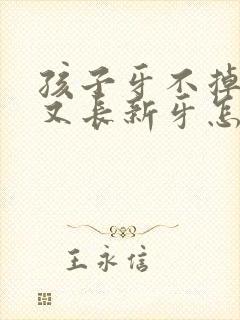 孩子牙不掉
又长新牙怎
王永信